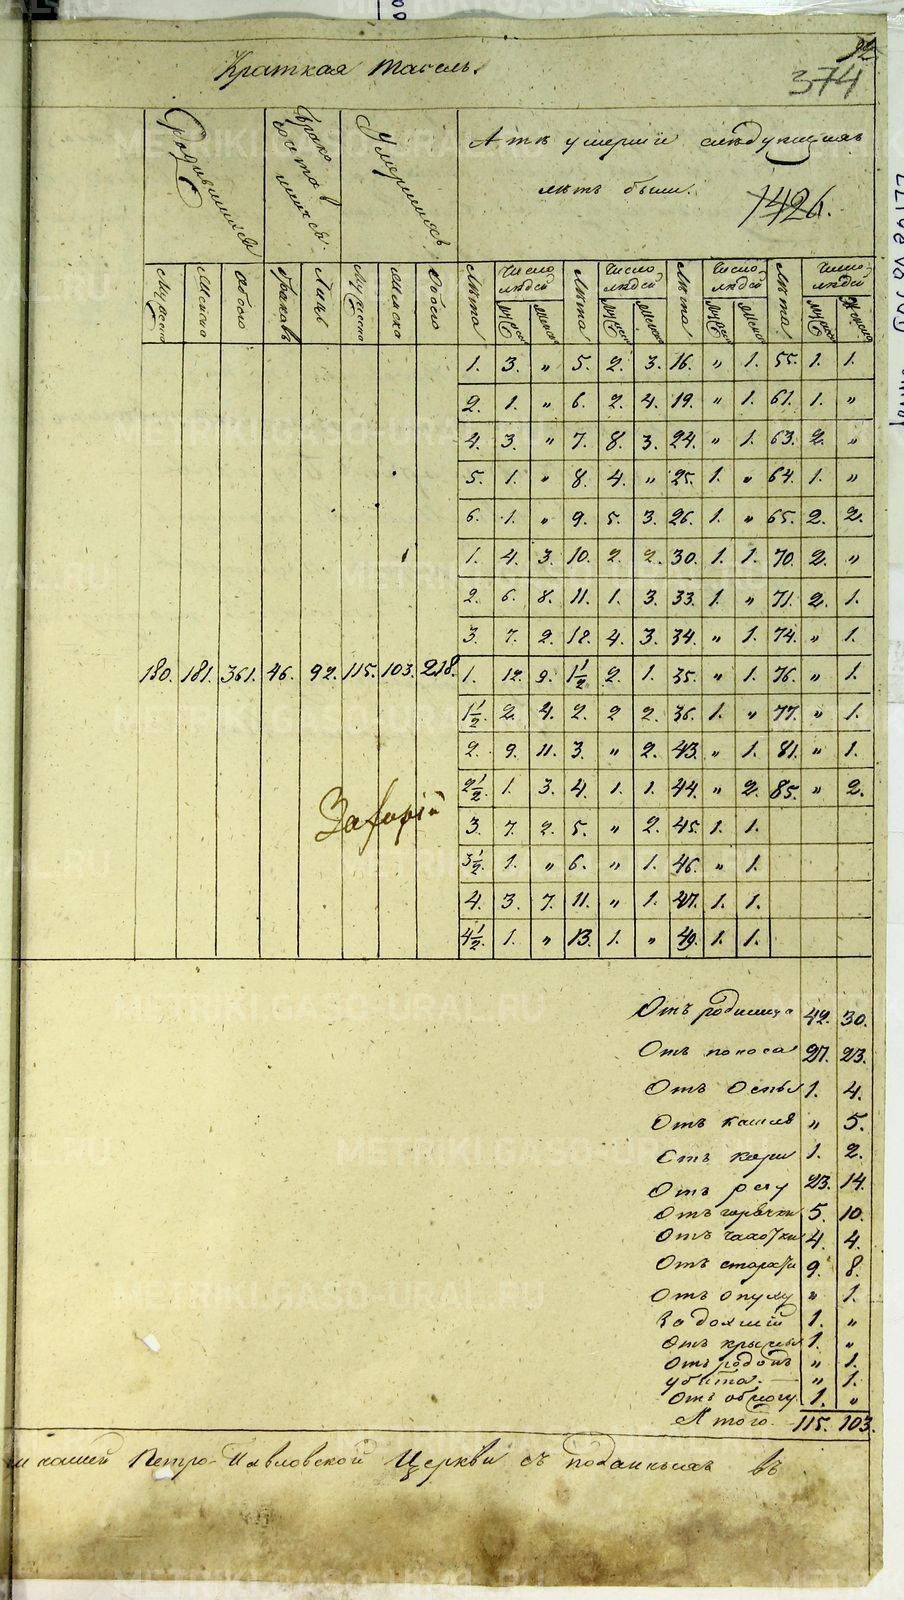 92
374
Краткая табель.
Родившихся
Умершихъ
А тѣ умершiи слѣдующихъ
лѣтъ были.
1426.
Мужеска Женска обоего Браковъ Лицъ Мужеска Женска обоего Лѣта Число людей Лѣта Число людей Лѣта Число людей Лѣта Число людей
Муж Женс Муж Женс Муж Женс Муж Женск
1. 3. „ 5. 2. 3. 16. „ 1. 55. 1. 1.
2. 1. „ 6. 2. 4. 19. „ 1. 61. 1. „
4. 3. „ 7. 8. 3. 24. „ 1. 63. 2. „
5. 1. „ 8. 4. „ 25. 1. „ 64. 1. „
6. 1. „ 9. 5. 3. 26. 1. „ 65. 2. 2.
1. 4. 3. 10. 2. 2. 30. 1. 1. 70. 2. „
2. 6. 8. 11. 1. 3. 33. 1. „ 71. 2. 1.
3. 7. 2. 12. 4. 3. 34. „ 1. 74. „ 1.
180. 181. 361. 46. 92. 115. 103. 218. 1. 12. 9. 1½ 2. 1. 35. „ 1. 76. „ 1.
1½. 2. 4. 2. 2 2. 36. 1. „ 77. „ 1.
2. 9. 11. 3. „ 2. 43. „ 1. 81. „ 1.
2½. 1. 3. 4. 1. 1. 44. „ 2. 85. „ 2.
3. 7. 2. 5. „ 2. 45. 1. 1.
3½. 1. „ 6. „ 1. 46. „ 1.
4. 3. 7. 11. „ 1. 47. 1. 1.
4½. 1. „ 13. 1. „ 49. 1. 1.
Отъ родимца 42. 30.
Отъ поноса 27. 23.
Отъ Оспы 1. 4.
Отъ кашля „ 5.
Отъ кори 1. 2.
Отъ 23. 14.
Отъ горячки 5. 10.
Отъ чахотки 4. 4.
Отъ старости 9. 8.
Отъ опуху „ 1.
1. „
Отъ 1. „
Отъ родовъ „ 1.
убита. „ 1.
Отъ 1. „
Итого. 115. 103.
нашей Петро-Павловской Церкви съ поданныхъ въ
METRIKI.GASO-URAL.RU